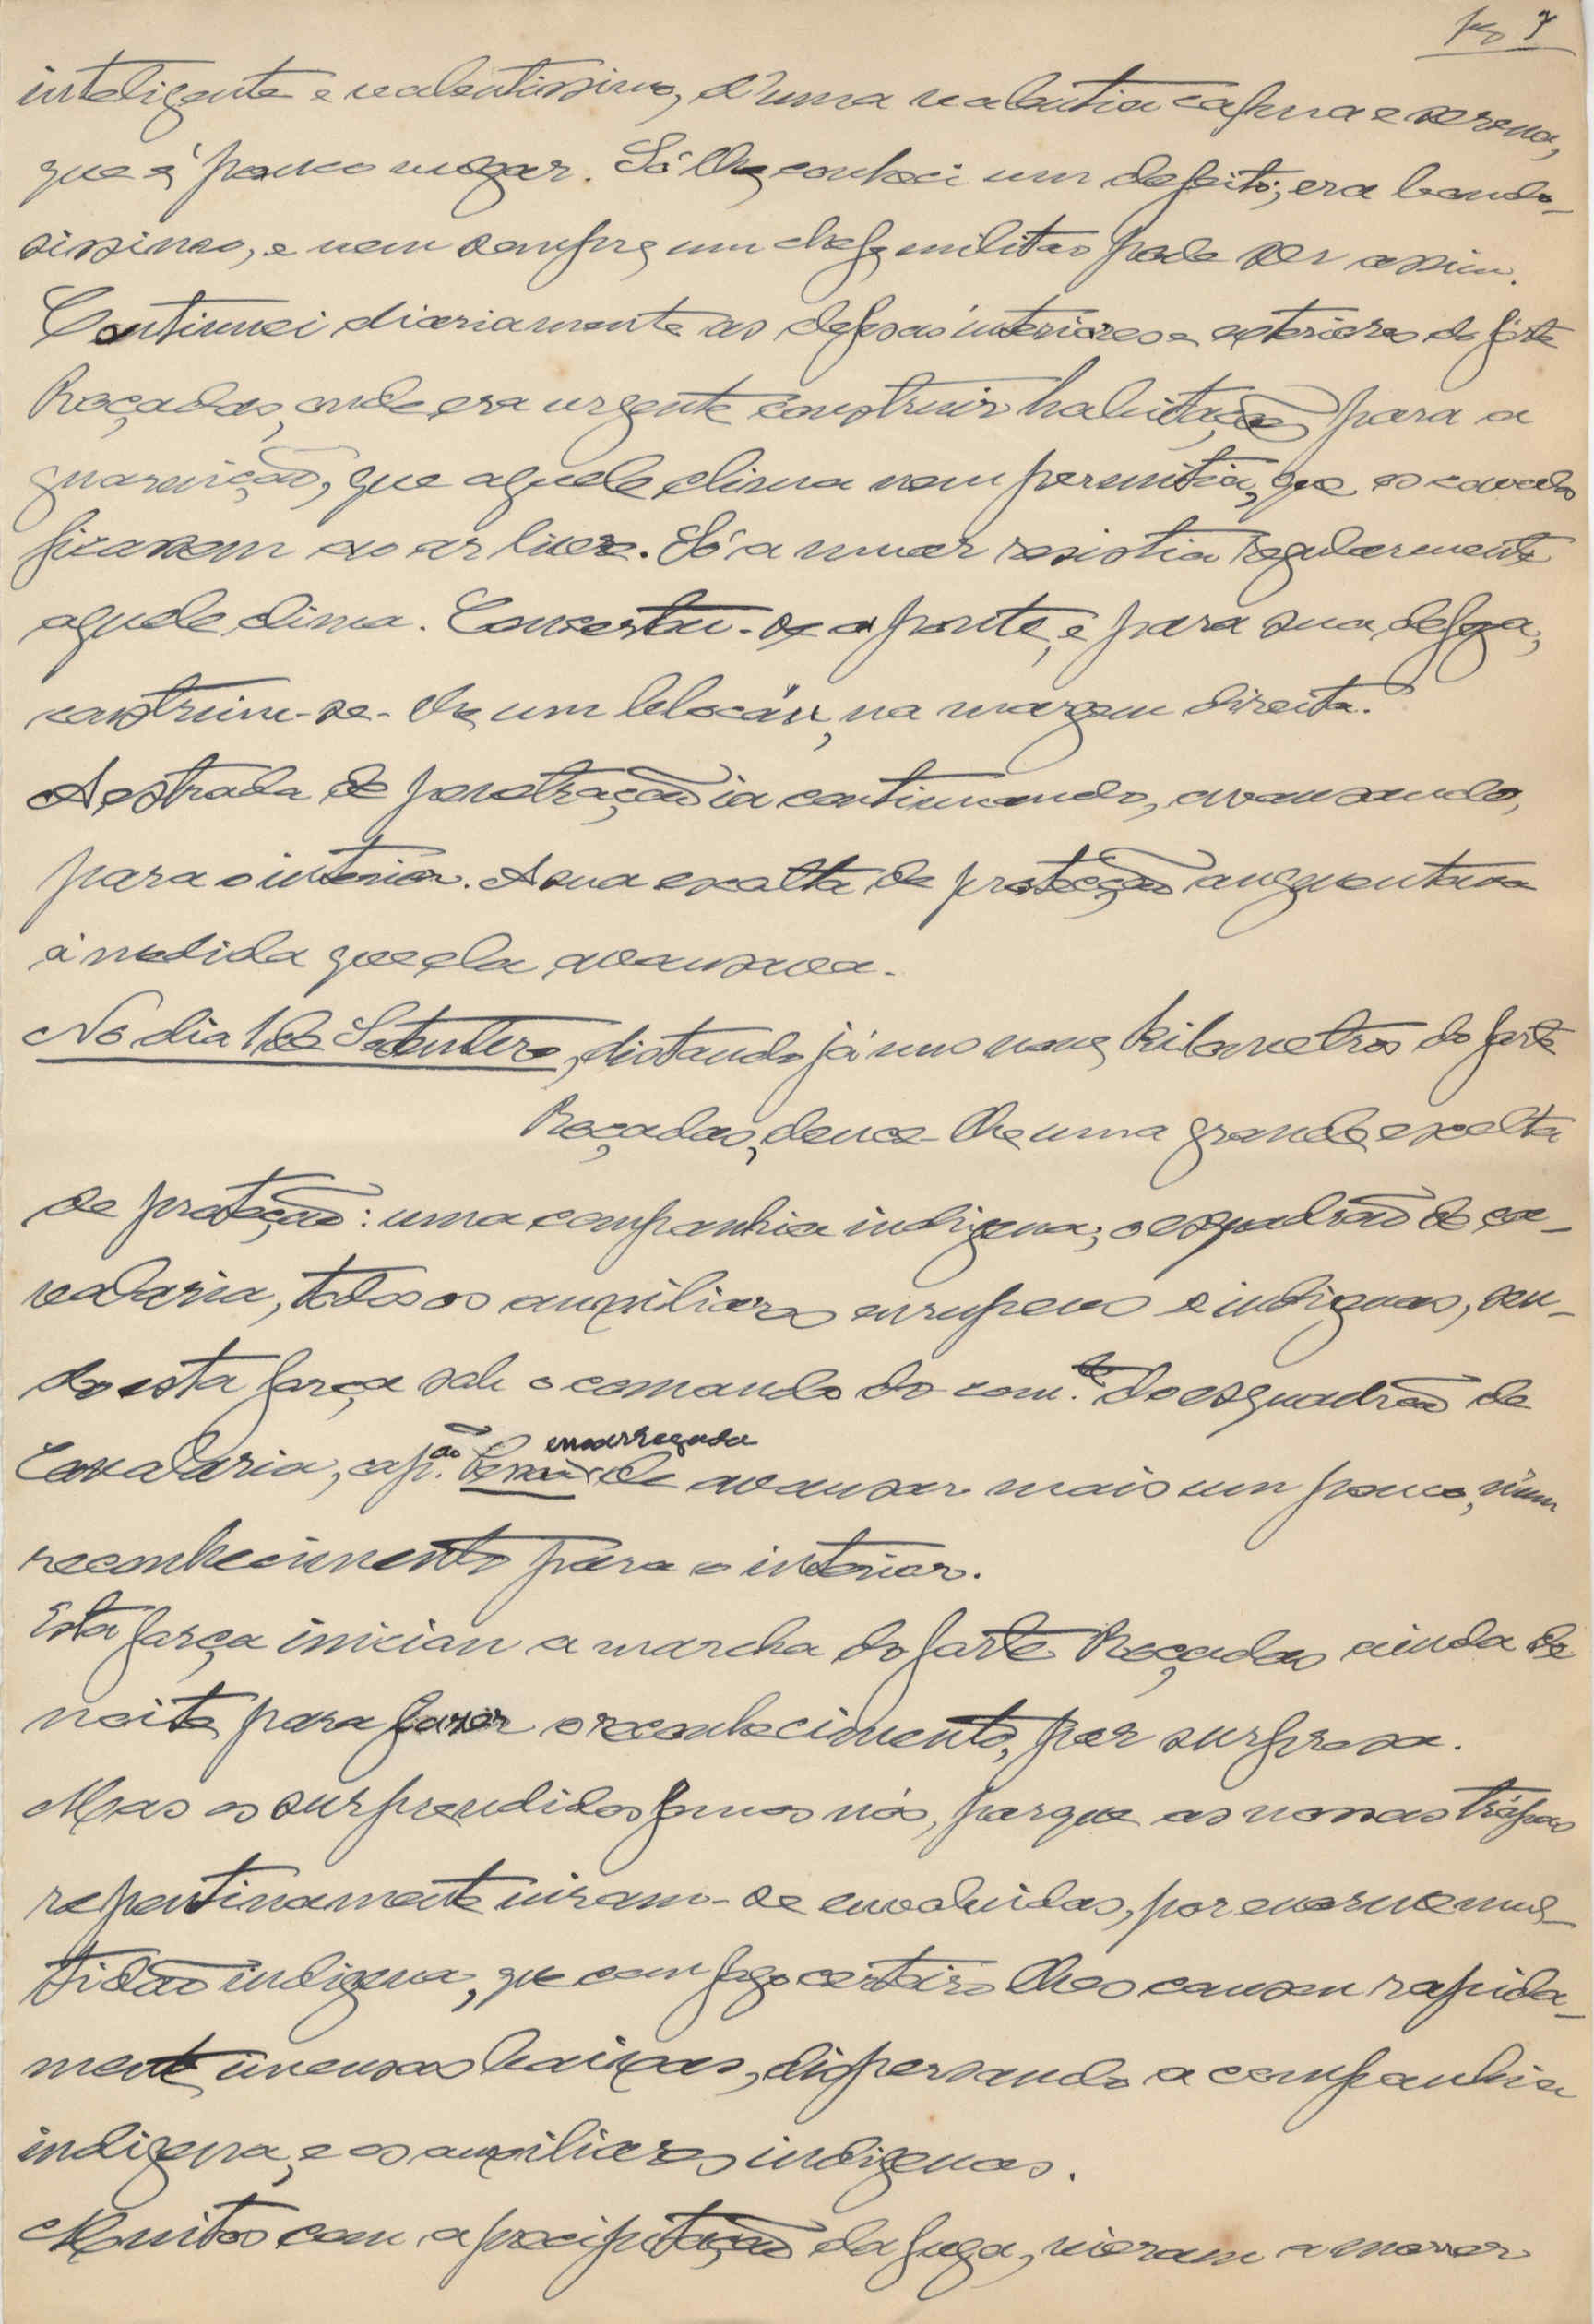 pg 7
inteligente e valentissimo, d'uma valentia calma e serena,
que é pouco vulgar. Só lhe conheci um defeito; era bondo-
sissimo, e nem sempre um chefe militar pode ser assim.
Continuei diariamente as defesas interiores e exteriores do forte
Roçadas, onde era urgente construir habitação para a
guarnição, que aquele clima nem permitia, que os cavalos
ficassem ao ar livre. Só a muar resistia regularmente
aquele clima. Concertou-se a ponte, e para sua defesa,
construiu-se-lhe um blocáu, na margem direita.
A estrada de penetração ia continuando, avansando,
para o interior. A sua escolta de protecção augmentava
á medida que ela avansava.
No dia 1 de Setembro, distando já uns nove kilometros do forte
Roçadas, deuce-lhe uma grande escolta
de proteção: uma companhia indigena; o esquadrão de ca-
valaria, todos os auxiliares europeus e indigenas, sen-
do esta força sob o comando do com.te do esquadrão de
Cavalaria, cap.ão encarregada
de avansar mais um pouco, num
reconhecimento para o interior.
Esta força iniciou a marcha do forte Roçadas ainda de
noite para fazer o reconhecimento, por surpresa.
Mas os surprendidos fomos nós, porque as nossas trópas
repentinamente viram-se envolvidas, por enorme mul-
tidão indigena, que com fogo certeiro lhes causou rapida-
mente imensas baixas, dispersando a companhia
indigena, e os auxiliares indigenas.
Muitos com a precipitação da fuga, vieram a morrer